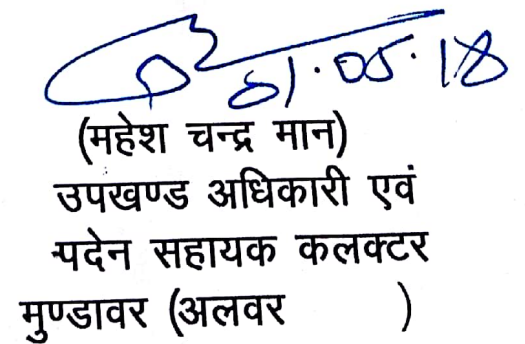 01.05.18
(महेश चन्द्र मान)
उपखण्ड अधिकारी एवं
पदेन सहायक कलक्टर
मुण्डावर (अलवर )